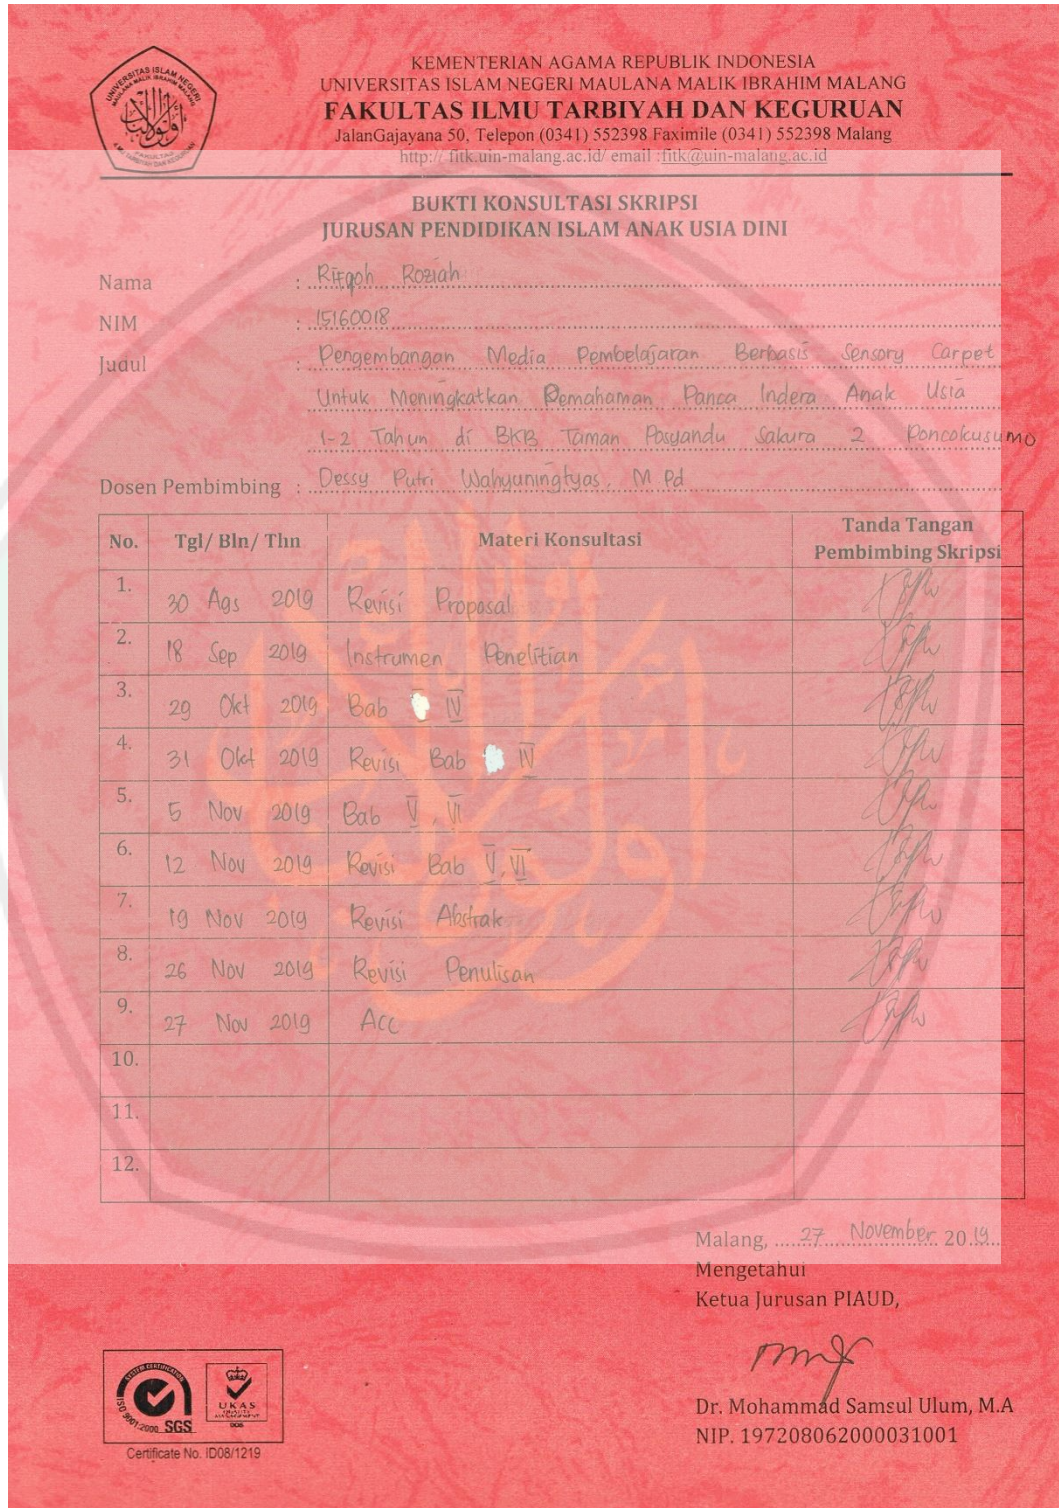 KEMENTERIAN AGAMA REPUBLIK INDONESIA
UNIVERSITAS ISLAM NEGERI MAULANA MALIK IBRAHIM MALANG
FAKULTAS ILMU TARBIYAH DAN KEGURUAN
JalanGajayana 50, Telepon (0341) 552398 Faximile (0341) 552398 Malang
http:// fitk.uin-malang.ac.id/ email :fitk@uin-malang.ac.id
BUKTI KONSULTASI SKRIPSI
JURUSAN PENDIDIKAN ISLAM ANAK USIA DINI
Nama : Rifqoh Roziah
NIM : 15160018
Judul : Pengembangan Media Pembelajaran Berbasis Sensory Carpet
Untuk Meningkatkan Pemahaman Panca Indera Anak Usia
1-2 Tahun di BKB Taman Posyandu Sakura 2 Poncokusumo
Dosen Pembimbing : Dessy Putri Wahyuningtyas, M Pd
No. Tgl/ Bln/ Thn Materi Konsultasi Tanda Tangan Pembimbing Skripsi
1. 30 Ags 2019 Revisi Proposal
2. 18 Sep 2019 Instrumen Penelitian
3. 29 Okt 2019 Bab IV
4. 31 Okt 2019 Revisi Bab IV
5. 5 Nov 2019 Bab V, VI
6. 12 Nov 2019 Revisi Bab V, VI
7. 19 Nov 2019 Revisi Abstrak
8. 26 Nov 2019 Revisi Penulisan
9. 27 Nov 2019 Acc
10.
11.
12.
Malang, 27 November 2019
Mengetahui
Ketua Jurusan PIAUD,
Dr. Mohammad Samsul Ulum, M.A
NIP. 197208062000031001
SYSTEM CERTIFICATION
ISO 9001:2000 SGS
UKAS
QUALITY
MANAGEMENT
005
Certificate No. ID08/1219